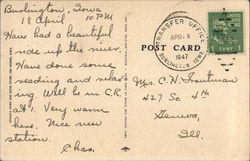 Burlington, Iowa
18 April 10 P.M.
Have had a beautiful
ride up the river.
Have done some
reading and relax-
ing. Will be in C.R.
at 1. Very warm
here. Nice new
station.
Chas.
TRANSFER OFFICE
APR
1947
BURLINGTON, IOWA
1¢
POST CARD
Mrs. C. H. Troutman
427 So. 4th
Geneva,
Ill.